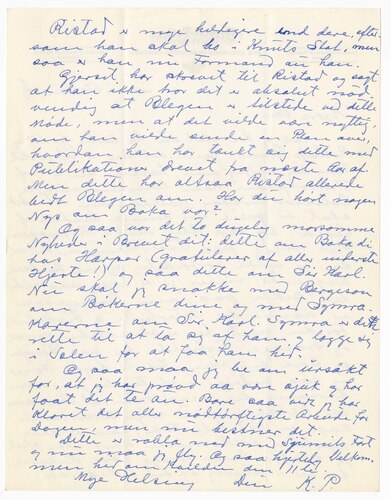 Ristad er mye heldigere end dere, efter-
som han skal bo i Knuts Stat, men
saa er han nu Formand au han.
Gjerset har skrevet til Ristad og sagt
at han ikke tror det er absolut nød-
vendig at Blegen er tilstede ved dette
Møde, men at det vilde være nyttig,
om han vilde sende en Plan over,
hvordan han har tænkt sig dette med
Publikationer drevet fra næste Aar af.
Men dette har altsaa Ristad allerede
bedt Blegen om. Har du hørt nogen
Nys om Boka vor?
Og saa var det to dugelig morsomme
Nyheder i Brevet dit: dette om Boka di
hos Harper (Gratulerer af aller inderste
Hjerte!) og saa dette om Sir Karl.
Nu skal jeg snakke med Bergeson
om Bøkerne dine og med Symra
Karerne om Sir Karl. Symra er de
rette til at ta sig af ham og lægge sig
i Selen for at faa ham hid.
Og saa maa jeg be om Ursækt
for, at jeg har prøvd aa være sjuk og har
faat det te an. Bare saa vidt jeg har
klaret det aller nødtørftigste Arbeide for
Dagen, men nu bedner det.
Dette er rabla ned med Fart
og nu maa jeg fly. Og saa hjertelig Velkom-
men her om Kvelden den 11te.
Mye Helsing Din K. P.